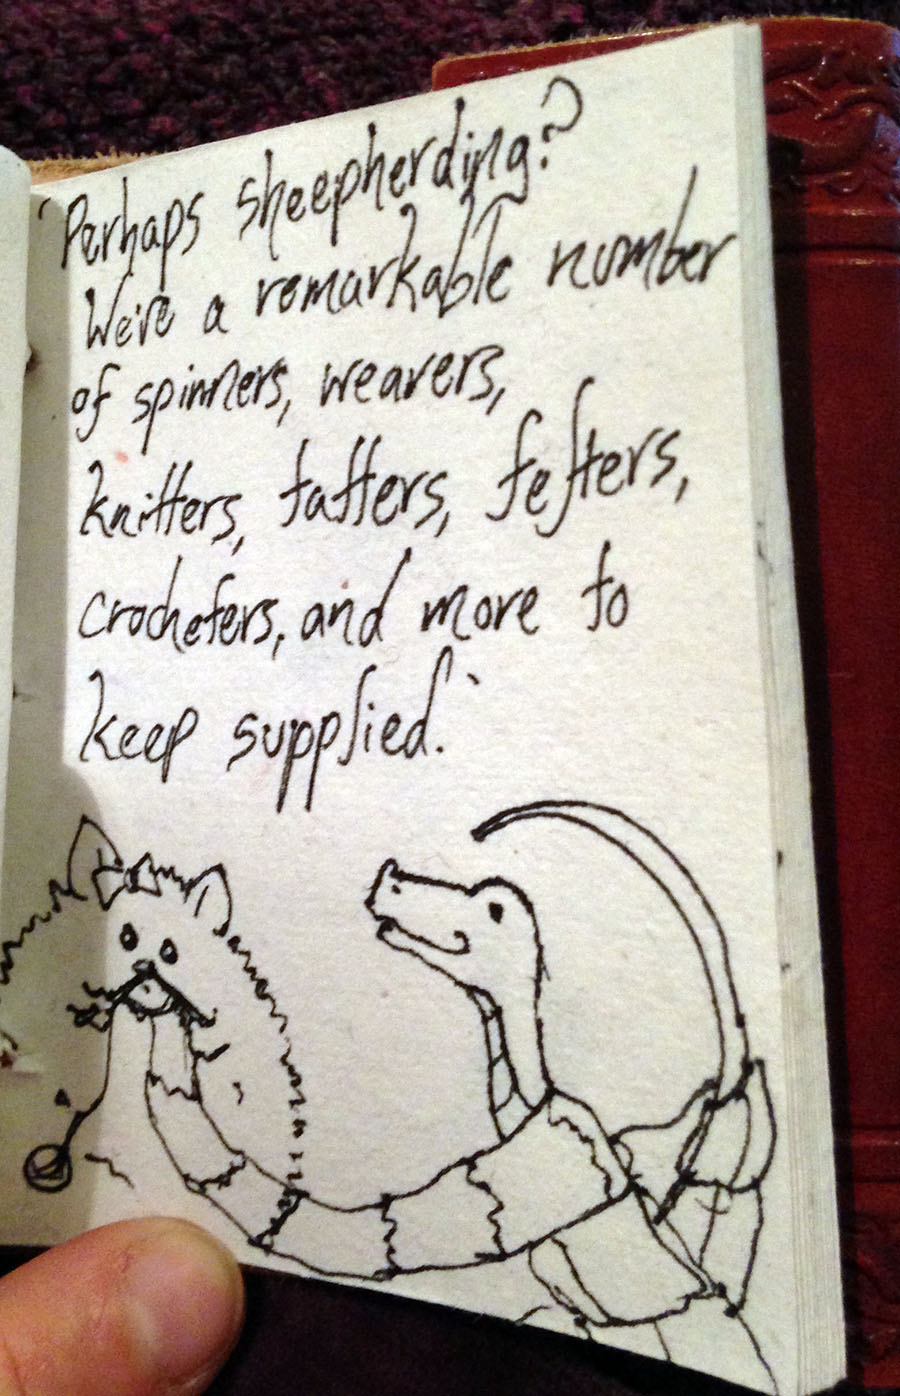 'Perhaps sheepherding?
We've a remarkable number
of spinners, weavers,
knitters, tatters, felters,
crocheters, and more to
keep supplied.'